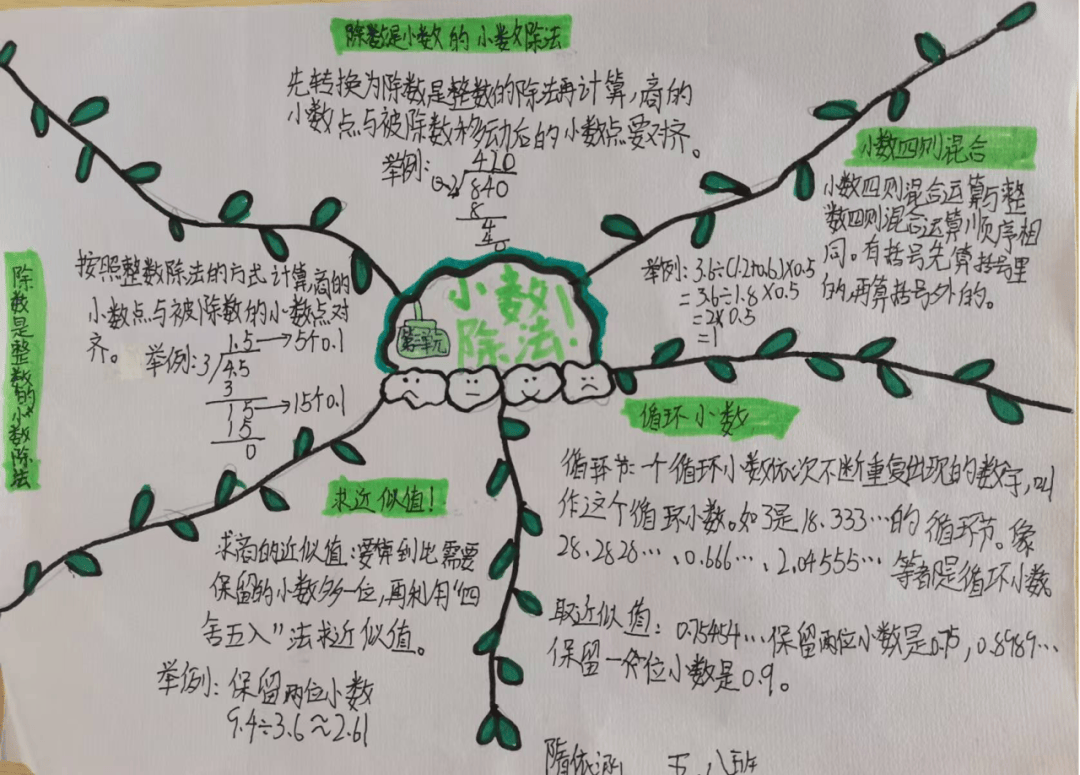 除数是小数的小数除法
先转换为除数是整数的除法再计算,商的
小数点与被除数移动后的小数点要对齐。
举例:
420
0.2 840
8
4
4
0
小数四则混合
小数四则混合运算与整
数四则混合运算顺序相
同。有括号先算括号里
的,再算括号外的。
举例:3.6÷(1.2+0.6)×0.5
=3.6÷1.8×0.5
=2×0.5
=1
除数是整数的小数除法
按照整数除法的方式计算,商的
小数点与被除数的小数点对
齐。
举例:
1.5→5个0.1
3 4.5
3
15→15个0.1
15
0
小数
除法!
第三单元
循环小数
循环节:一个循环小数依次不断重复出现的数字,叫
作这个循环小数。如3是18.333…的循环节。像
28.2828…、0.666…、2.04555…等都是循环小数。
取近似值:0.75454…保留两位小数是0.75,0.8989…
保留一位小数是0.9。
求近似值!
求商的近似值:要算到比需要
保留的小数多一位,再利用"四
舍五入"法求近似值。
举例:保留两位小数
9.4÷3.6≈2.61
隋依 五、八班